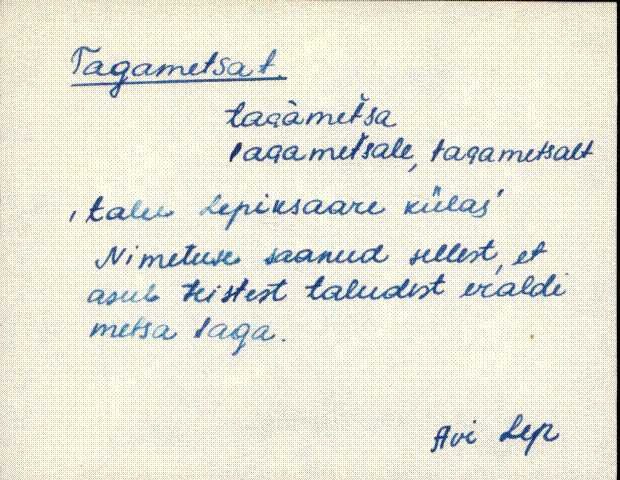 Tagametsa t.
tagàmet̆sa
tagamet̆sale, tagametsalt
'talu Lepiksaare külas'
Nimetuse saanud sellest, et
asub teistest taludest eraldi
metsa taga.
Avi Lep